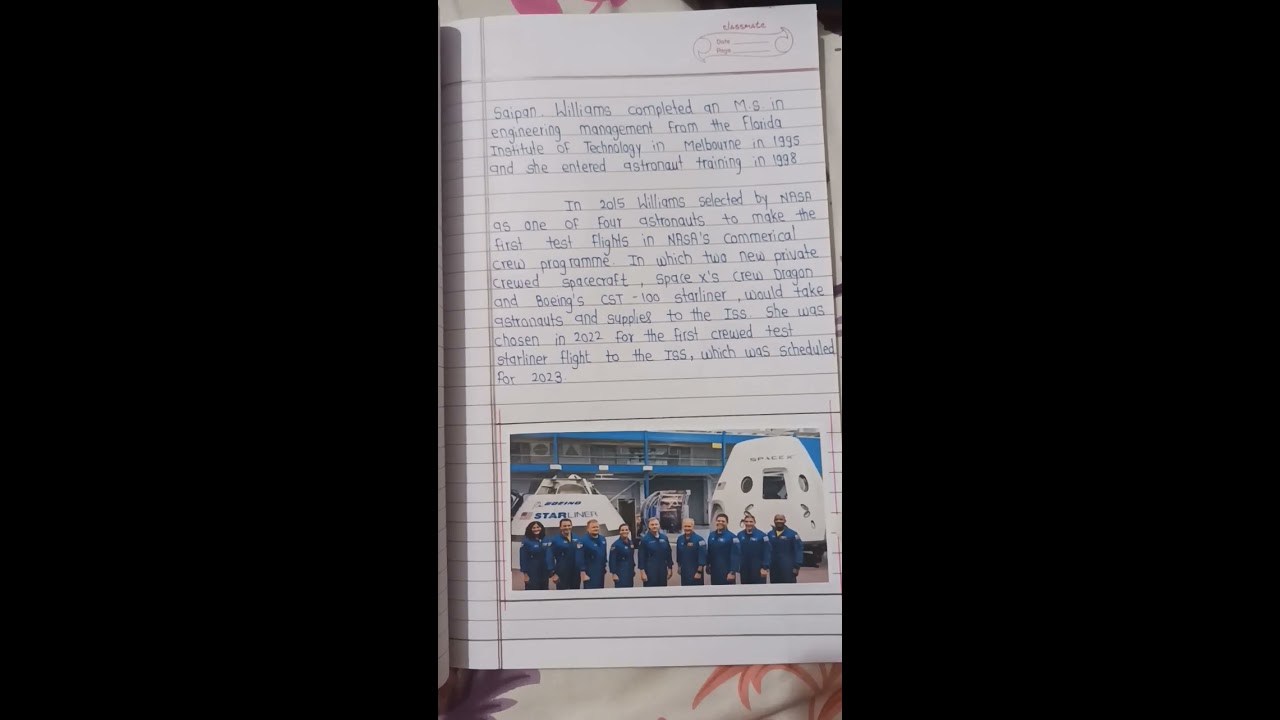 classmate
Date
Page
Saipan. Williams completed an M.S. in
engineering management from the Florida
Institute of Technology in Melbourne in 1995
and she entered astronaut training in 1998
In 2015 Williams selected by NASA
as one of Four astronauts to make the
first test flights in NASA's commerical
crew programme. In which two new private
crewed spacecraft, Space x's crew Dragon
and Boeing's CST-100 starliner, would take
astronauts and supplies to the Iss She was
chosen in 2022 for the first crewed test
starliner flight to the ISS, which was scheduled
for 2023.
SPACEX
BOEING
STARLINER